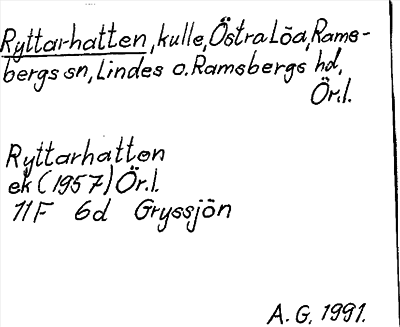 Ryttarhatten, kulle, Östra Löa, Rams-
bergs sn, Lindes o. Ramsbergs hd,
Ör.l.
Ryttarhatten
ek (1957) Ör.l.
11F 6d Gryssjön
A.G. 1991.